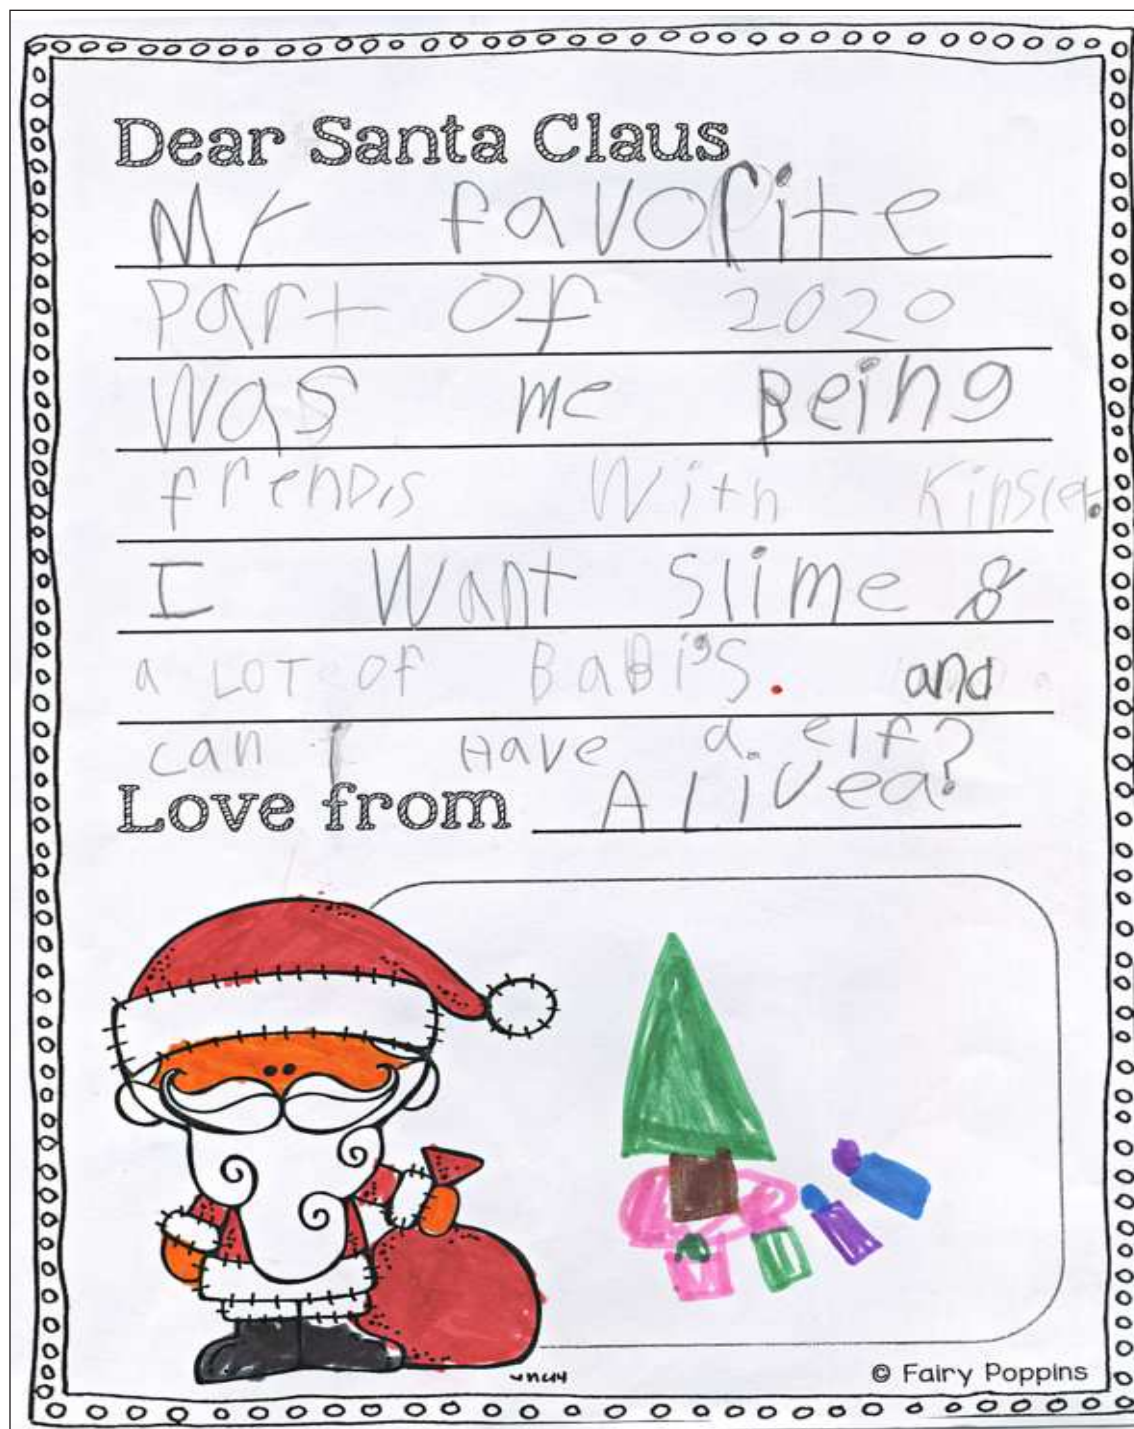 Dear Santa Claus
My favorite
part of 2020
was me Being
frenDs With
I Want slime &
a LOT of BaBi's. and
can I Have a. elf?
Love from Alivea
© Fairy Poppins